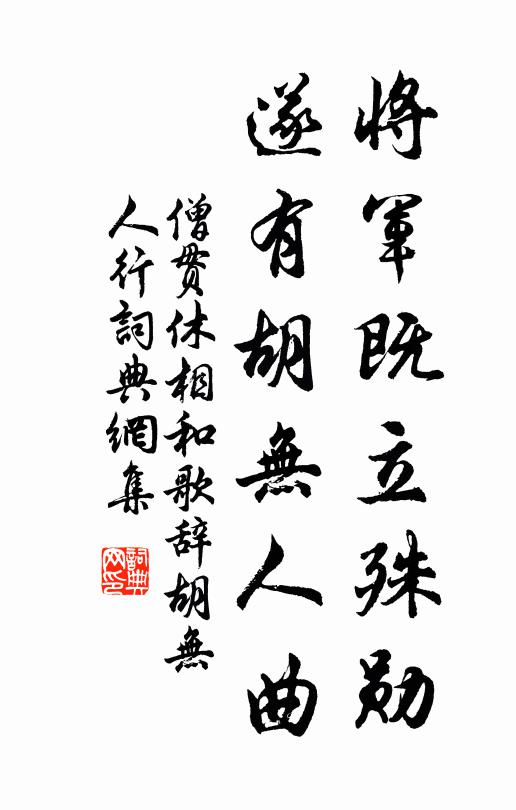 將軍既立殊勛
遂有胡無人曲
僧貫休相和歌辞胡無
人行詞典網集
詞典网印